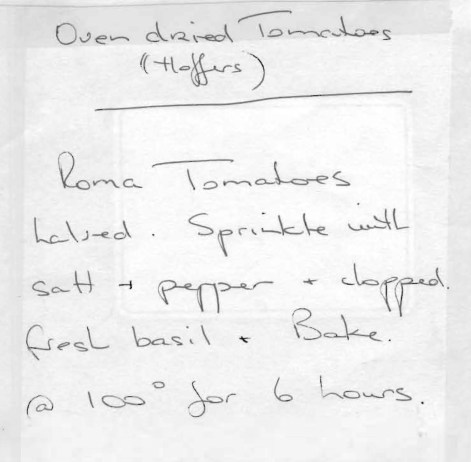 Oven dried Tomatoes
(Hoffers)
Roma Tomatoes
halved. Sprinkle with
salt + pepper + chopped.
fresh basil + Bake.
@ 100° for 6 hours.